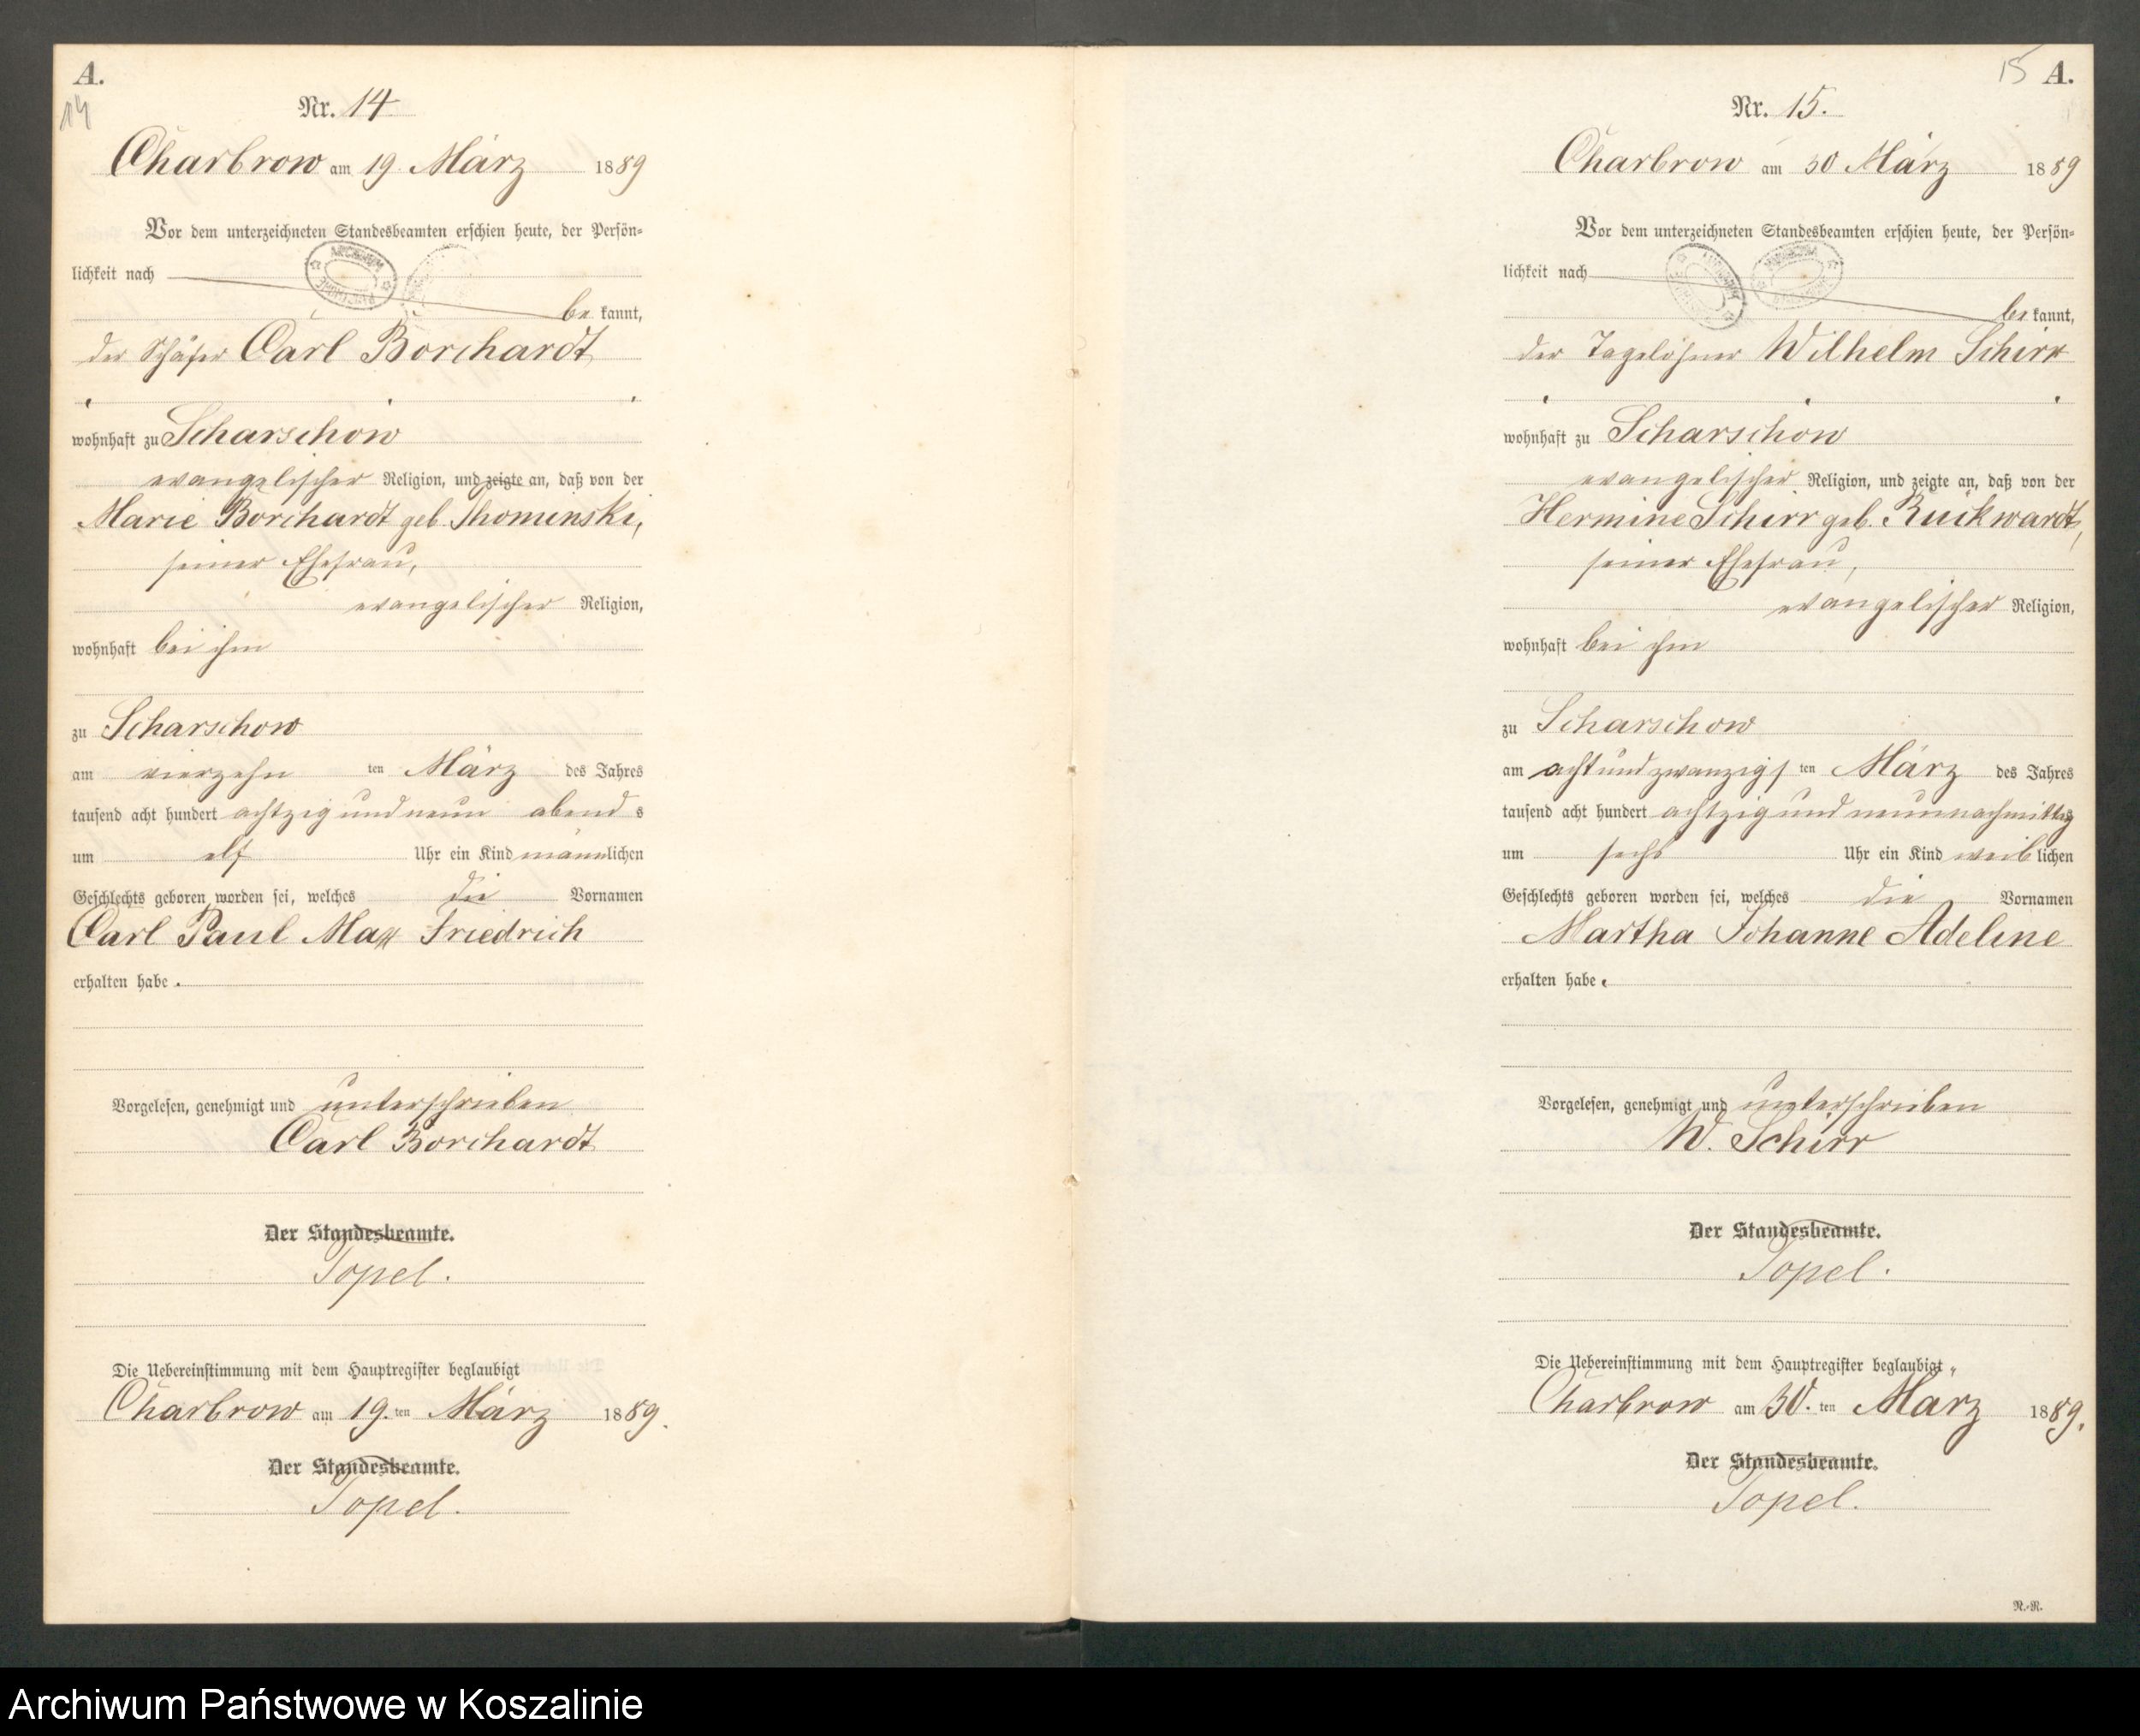 A.
14
Nr. 14
Charbrow am 19. März 1889
Vor dem unterzeichneten Standesbeamten erschien heute, der Persön-
lichkeit nach
be kannt,
der Schäfer Carl Borchardt
wohnhaft zu Scharschow
evangelischer Religion, und zeigte an, daß von der
Marie Borchardt geb. Thominski,
seiner Ehefrau,
evangelischer Religion,
wohnhaft bei ihm
zu Scharschow
am vierzehn ten März des Jahres
tausend acht hundert achtzig und neun abend s
um elf Uhr ein Kind männlichen
Geschlechts geboren worden sei, welches die Vornamen
Carl Paul Max Friedrich
erhalten habe.
Vorgelesen, genehmigt und unterschrieben
Carl Borchardt
Der Standesbeamte.
Topel.
Die Uebereinstimmung mit dem Hauptregister beglaubigt
Charbrow am 19. ten März 1889.
Der Standesbeamte.
Topel.
15 A.
Nr. 15.
Charbrow am 30 März 1889
Vor dem unterzeichneten Standesbeamten erschien heute, der Persön-
lichkeit nach
be kannt,
der Tagelöhner Wilhelm Schirr
wohnhaft zu Scharschow
evangelischer Religion, und zeigte an, daß von der
Hermine Schirr geb. Rückwardt,
seiner Ehefrau,
evangelischer Religion,
wohnhaft bei ihm
zu Scharschow
am acht und zwanzigs ten März des Jahres
tausend acht hundert achtzig und neun nachmittags
um sechs Uhr ein Kind weiblichen
Geschlechts geboren worden sei, welches die Vornamen
Martha Johanne Adeline
erhalten habe.
Vorgelesen, genehmigt und unterschrieben
W. Schirr
Der Standesbeamte.
Topel.
Die Uebereinstimmung mit dem Hauptregister beglaubigt,
Charbrow am 30. ten März 1889.
Der Standesbeamte.
Topel.
R.-R.
Archiwum Państwowe w Koszalinie